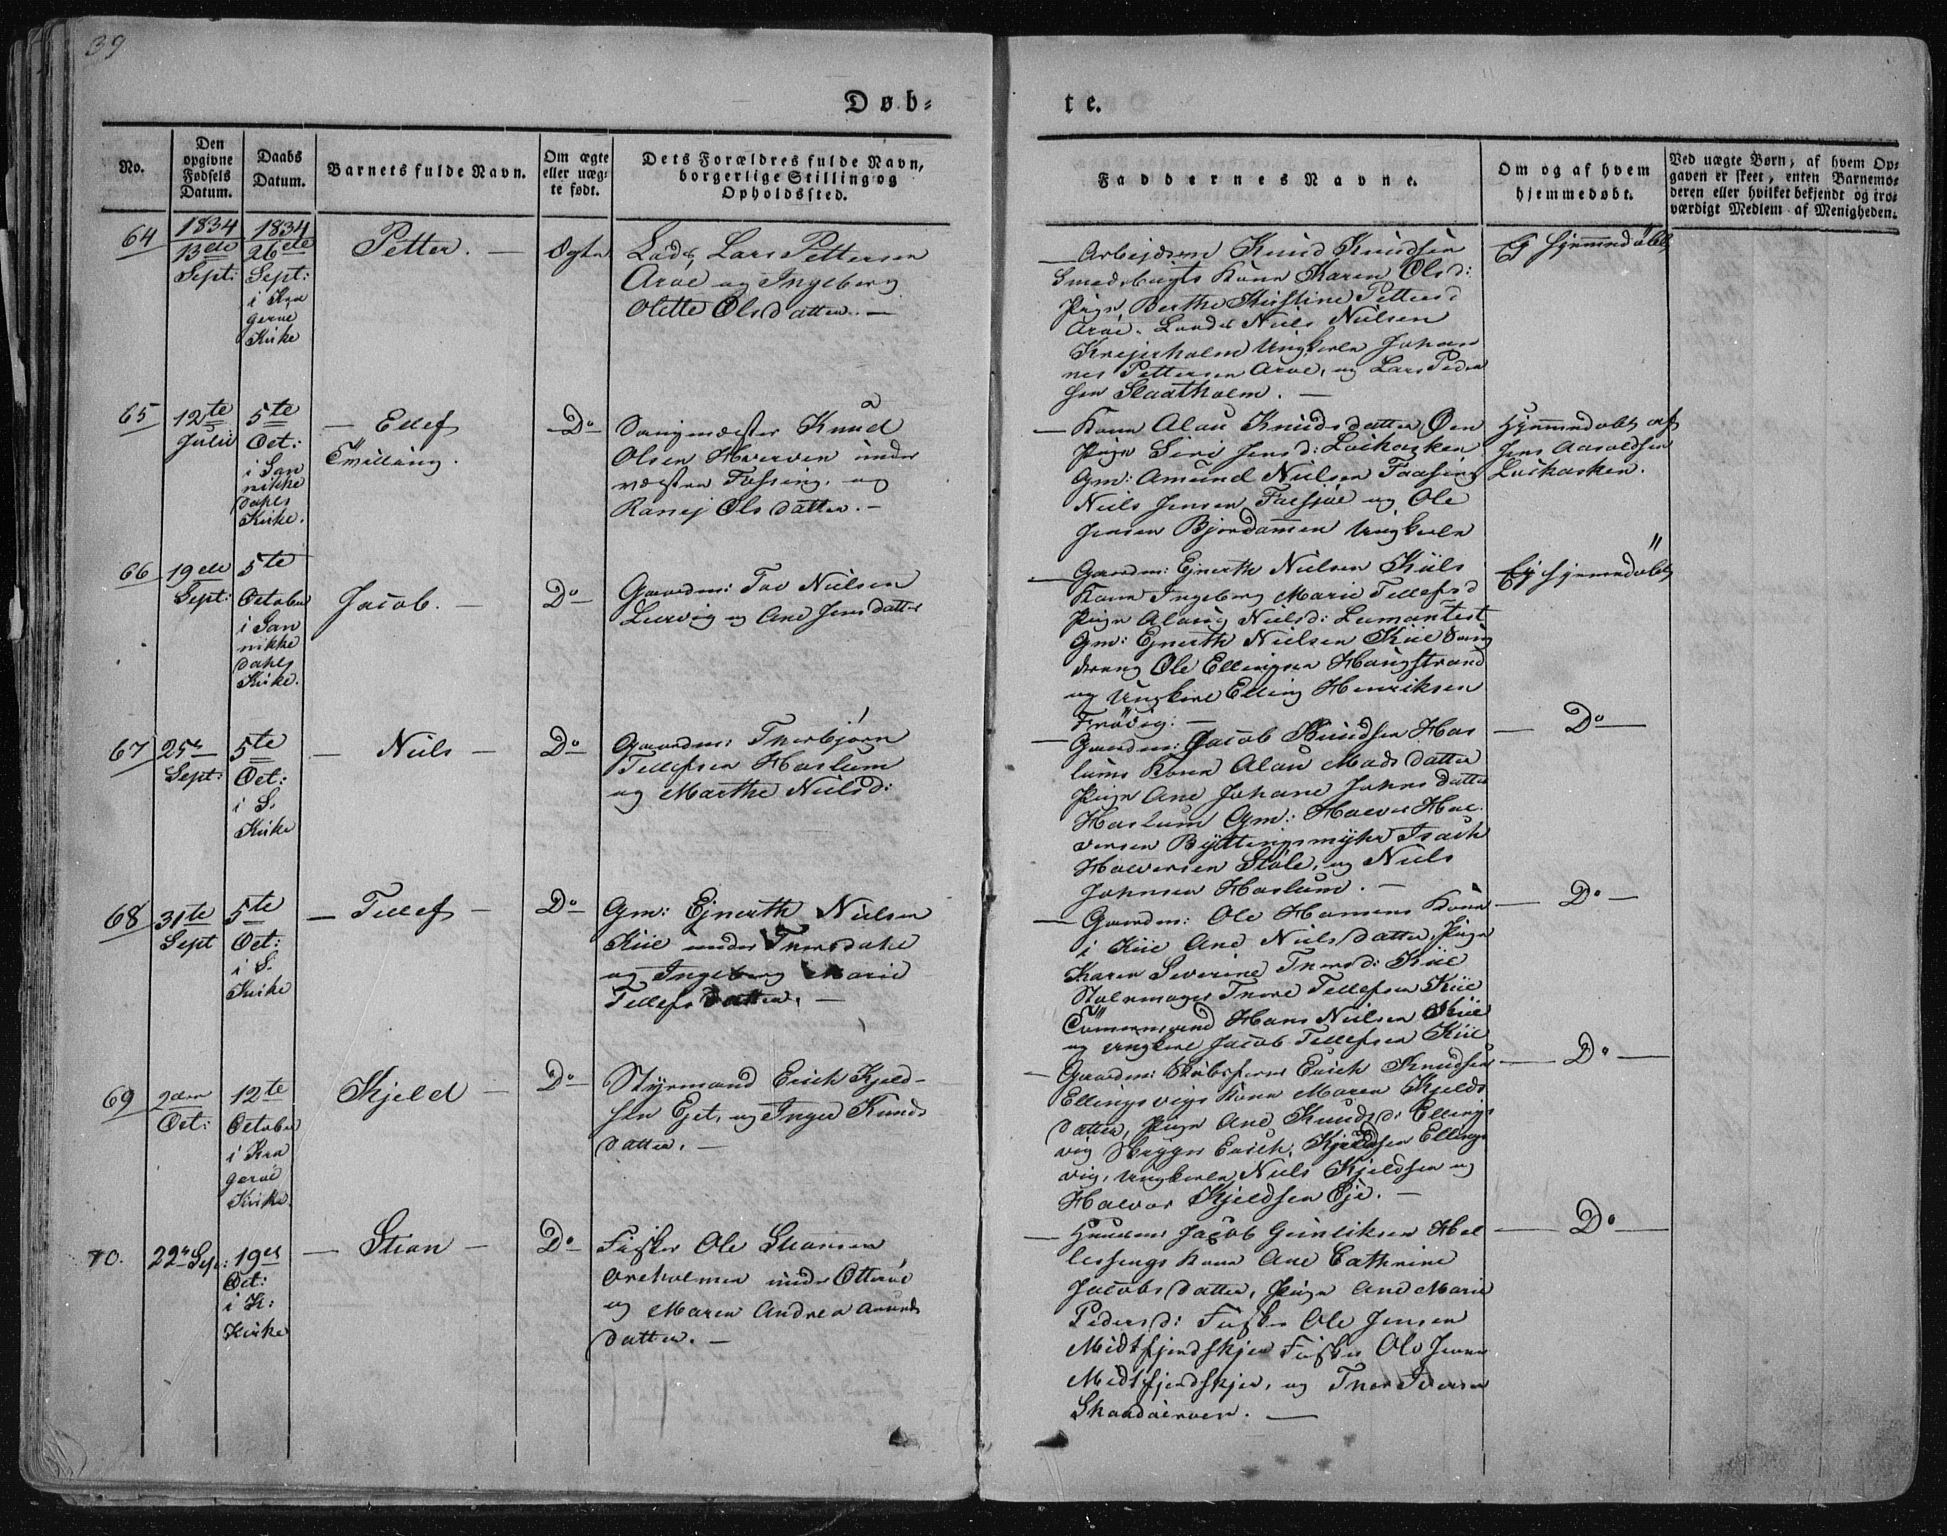 39
Døb-
te.
No.
Den opgivne Fødsels Datum.
Daabs Datum.
Barnets fulde Navn.
Om ægte eller uægte født.
Dets Forældres fulde Navn, borgerlige Stilling og Opholdssted.
Faddernes Navne.
Om og af hvem hjemmedøbt.
Ved uægte Børn; af hvem Opgaven er skeet, enten Barnemoderen eller hvilket bekjendt og troværdigt Medlem af Menigheden.
64
1834
13de
Sept:
1834
26de
Sept:
i Kra
gerøe
Kirke
Petter. —
Ægte
Lods Lars Pettersen
Arøe og Ingeborg
Olette Olsdatter. —
— Arbejdsm Knud Knudsen
Smedsbugts Kone Karen Olsd:
Pige Berthe Kirstine Petersd
Arøe. Lods Niels Nielsen
Krejerholm Ungkarle Johan
nes Pettersen Arøe, og Lars Peder
sen Slaatholm. —
Ej hjemmedøbt
65
12te
Julii
5te
Oct:
i San
nikke
dahls
Kirke.
— Ellef
Tvilling.
Do
Olsen under
og
Ranej Olsdatter. —
— Kone Alau Knudsdatter
Pige Siri Jensd:
Gm: Amund Nielsen
Niels Jensen og Ole
Jensen Ungkarle
Hjemmedøbt af
Jens Aavoldsen
66
19de
Sept:
5te
October
i San
nikke
dahls
Kirke.
Jacob. —
Do
Gaardm: Tov Nielsen
Lurvig og Ane Jensdatter
— Gaardm: Ejnerth Nielsen Kiils
Kone Ingeborg Marie Tellefsd
Pige Alaug Nielsd:
Gm: Ejnerth Nielsen Kiil
Ole Ellingsen Haugstrand
og Ungkarl Elling Henriksen
Frøvig: —
Ej hjemmedøbt
67
25de
Sept:
5te
Oct:
i S.
Kirke
— Niels —
Do
Gaardm: Thorbjørn
Tellefsen Haslum
og Marthe Nielsd:
— Gaardm: Jacob Knudsen Has
lums Kone Alau Madsdatter
Pige Ane Johane Johnsdatter
Haslum Gm: Halvor Hal
vorsen Byttingsmyhr Isach
Halvorsen Støle, og Niels
Johnsen Haslum. —
— Do —
68
31te
Sept
5te
Oct:
i S.
Kirke
— Tellef —
Do
Gm: Ejnerth Nielsen
Kiil under Thorsdahl
og Ingeborg Marie
Tellefsdatter. —
— Gaardm: Ole Hansens Kone
i Kiil Ane Nielsdatter, Pige
Karen Severine Thorsd: Kiil
Stolemager Thore Tellefsen Kiil
Tømmermand Hans Nielsen Kiil
og Ungkarl Jacob Tellefsen Kiil
— Do —
69
2den
Oct:
12te
October
i Kra
gerøe
Kirke.
Kjeld —
Do
Styrmand Erich Kjeld-
sen Eje, og Inger Knuds
datter. —
— Gaardm: Erich Knudsen
Ellingsvigs Kone Maren Kjelds
datter, Pige Ane Knudsd: Ellings
vig Skipper Erich Kjeldsen Ellings
vig, Ungkarle Niels Kjeldsen og
Halvor Kjeldsen Eje. —
— Do —
70.
22de Sep:
19de
Oct:
i K:
Kirke
— Stian —
Do
Fisker Ole Stiansen
under Otterøe
og Maren Andrea Amunds
datter. —
— Huusm Jacob Gunliksen Hel
lesengs Kone Ane Cathrine
Jacobsdatter, Pige Ane Marie
Pedersd: Fisker Ole Jensen
Midtfjordskjer Fisker Ole Jensen
Midtfjordskjer, og Thor Iversen
— Do —